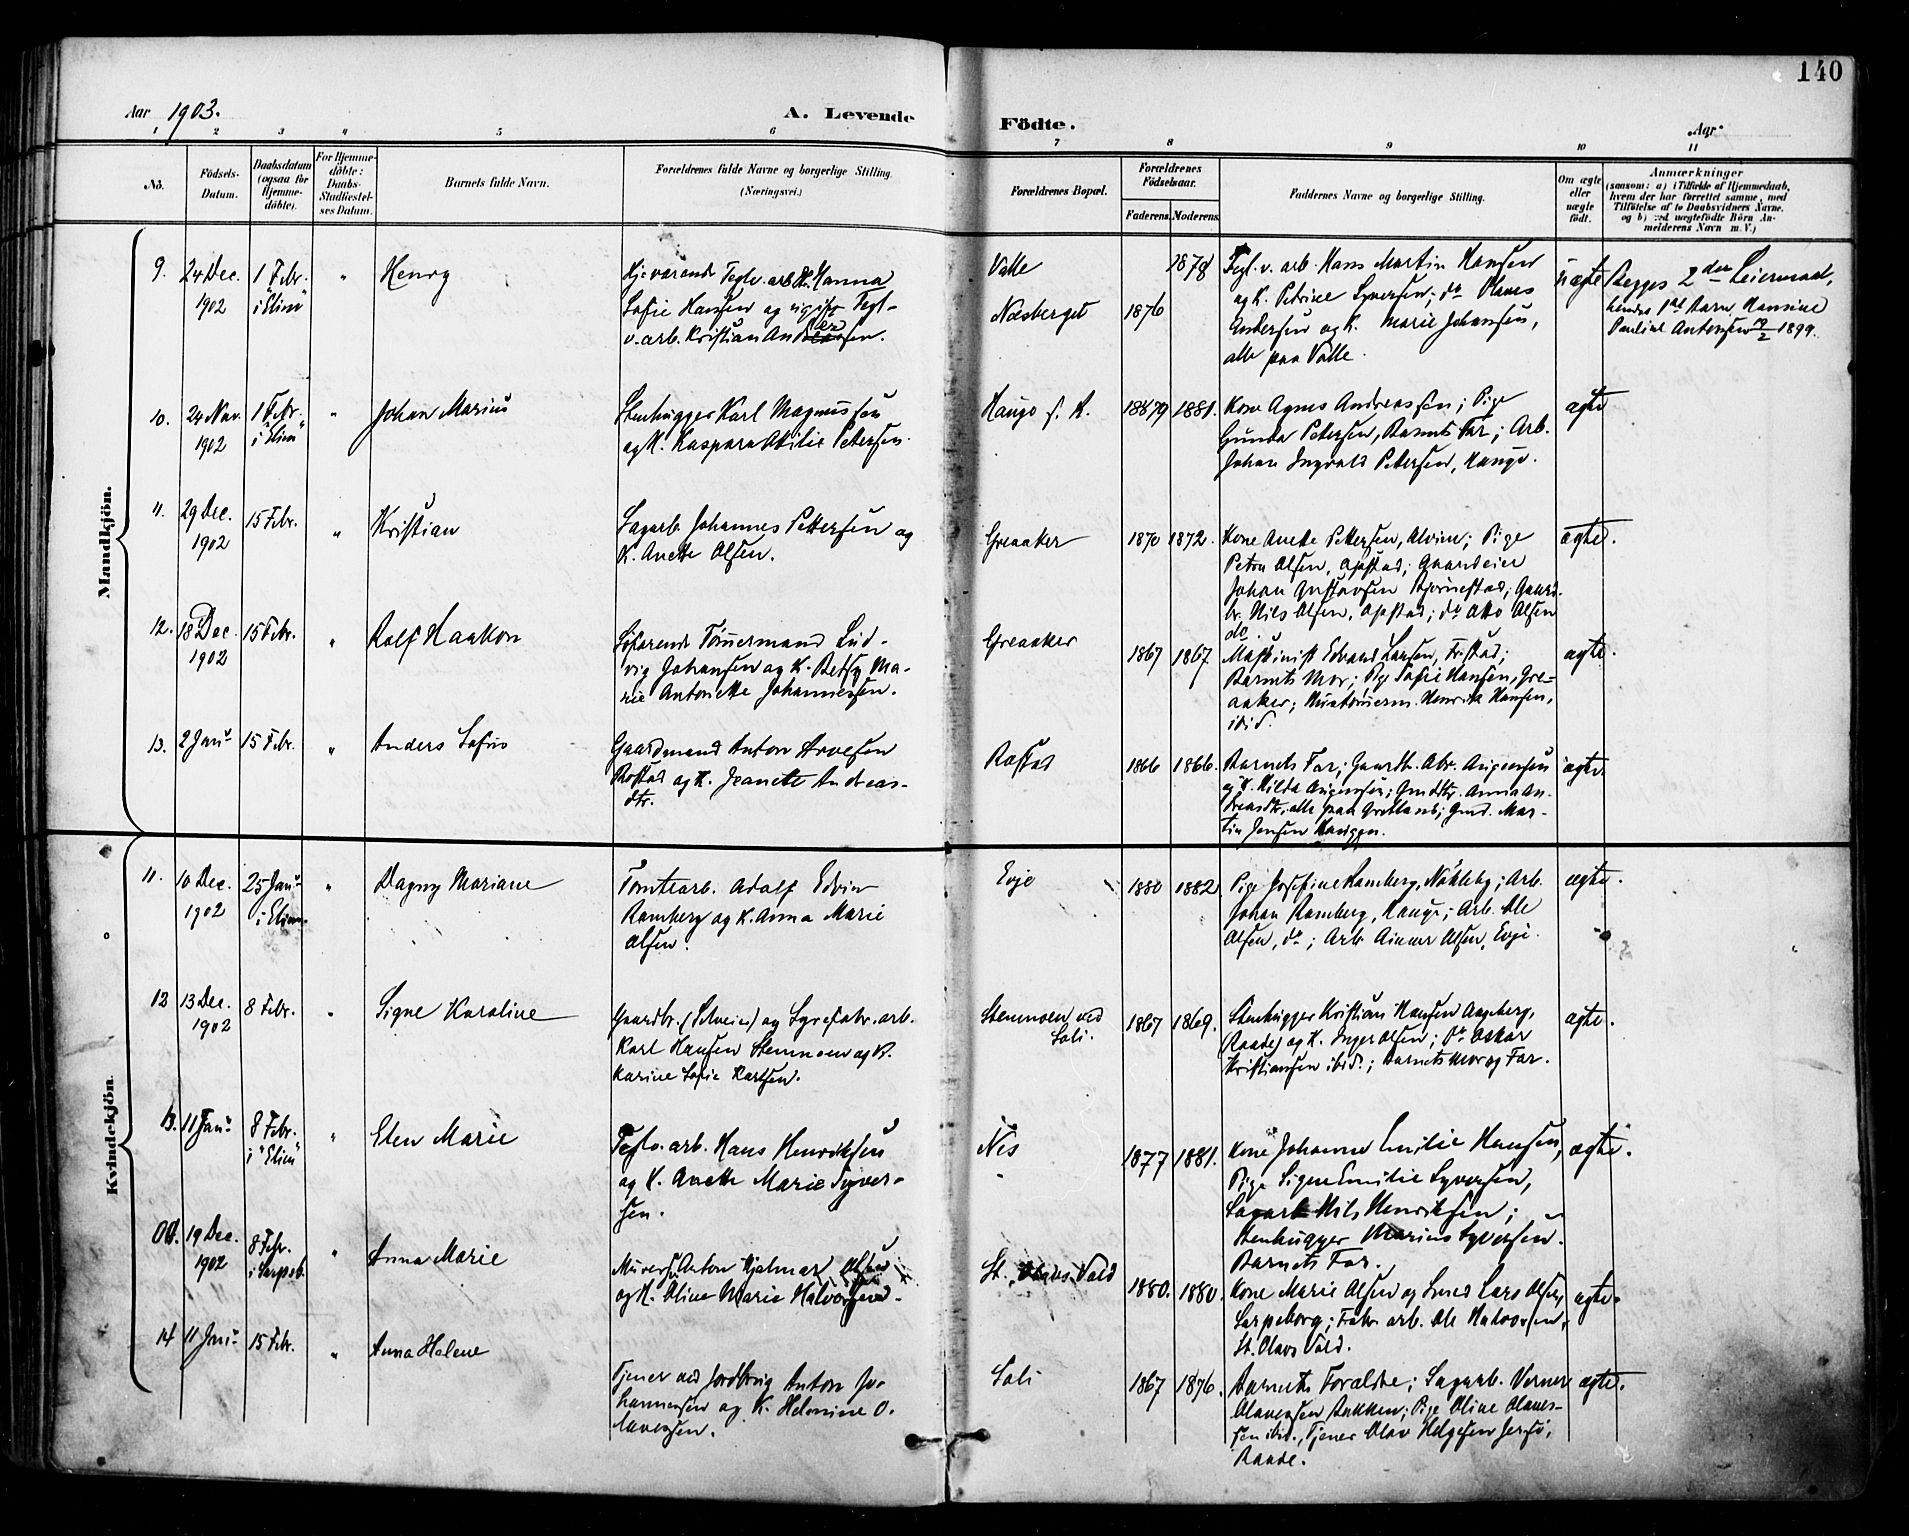 140
Aar 1903.
A. Levende Födte.
Aar
1 2 3 4 5 6 7 8 9 10 11
No.
Födsels-Datum.
Daabsdatum (ogsaa for Hjemme-döbte).
For Hjemme-döbte: Daabs-Stadfæstel-ses Datum.
Barnets fulde Navn.
Forældrenes fulde Navne og borgerlige Stilling.
(Næringsvei.)
Forældrenes Bopæl.
Forældrenes Födselsaar.
Faderens. Moderens.
Faddernes Navne og borgerlige Stilling.
Om ægte eller uægte födt.
Anmærkninger
(saasom: a) i Tilfælde af Hjemmedaab,
hvem der har forrettet samme, med
Tilföielse af to Daabsvidners Navne.
og b) ved uægtefödte Börn An-
melderens Navn m. V.)
Mandkjön.
9. 24 Dec. 1902
1 Febr. i "Elim"
"
Henry
Hjeværende Teglv. arb. Hanna
Sofie Hansen og ugift Tegl-
v. arb. Kristian Andersen.
Valle
Næsberget
1876 1878
Tegl. v. arb. Hans Martin Hansen
og K. Petrine Syversen; do Olaves
Andersen og K. Marie Johansen,
alle paa Valle.
uægte
Begges 2den Leiermaal,
hendes 1ste Barn Hansine
Pauline Antonsen 1899.
10. 24 Nov. 1902
1 Febr. i "Elim"
"
Johan Marius
Stenhugger Karl Magnussen
og K. Kaspara Otilie Petersen.
Haugo f. K.
1879 1881.
Kone Agnes Andreassen; Pige
Gunda Petersen, Barnets Far; Arb.
Johan Ingvald Petersen, Hauge.
ægte
11. 29 Dec. 1902
15 Febr.
"
Kristian
Sagarb. Johannes Pettersen og
K. Anette Olsen.
Greaaker
1870 1872.
Kone Anette Pettersen, Alvim; Pige
Petra Olsen, Opstad; Gaardeier
Johan Gustavsen Bjørnestad; Gaard-
br. Nils Olsen, Opstad; do Otto Olsen
do.
ægte.
12. 18 Dec. 1902
15 Febr.
"
Rolf Haakon
Søfarende Tømmermand Lud-
vig Johansen og K. Betsy Ma-
rie Antonette Johannessen.
Greaaker
1867 1867
Maskinist Edvard Larsen, Fr.stad;
Barnets Mor; Pige Sofie Hansen, Gre-
aaker; Hustømerm. Henrik Hansen,
ibid.
ægte.
13. 2 Janr
15 Febr.
"
Anders Sofus
Gaardmand Anton Arvesen
Rostad og K. Jeanette Andreas-
dtr.
Rostad
1866 1866.
Barnets Far; Gaardb. Abr. Augensen
og K. Hilda Augensen; Gmdtr. Anna An-
dreasdtr, alle paa Gretland; Gmd. Mar-
tin Jensen Haugger.
ægte.
Kvindekjön.
11. 10 Dec. 1902
25 Janr i Elim
"
Dagny Mariane
Tomtearb. Adolf Edvin
Ramberg og K. Anna Marie
Olsen.
Evje
1880 1882
Pige Josefine Ramberg, Nökleby; Arb.
Johan Ramberg, Hauge; Arb. Ole
Olsen, do; Arb. Ainar Olsen, Evje.
ægte.
12 13 Dec. 1902
8 Febr.
"
Signe Karoline
Gaardbr. (Selveier) og Syrefabr. arb.
Karl Hansen Stenmoen og K.
Karine Sofie Karlsen.
Stenmoen ved Soli.
1867 1869.
Stenhugger Kristian Hansen Augeberg,
Raade, og K. Inger Olsen; do Oskar
Kristiansen ibid.; Barnets Mor og Far.
ægte.
13. 11 Janr
8 Febr. i "Elim"
"
Elen Marie
Teglv. arb. Hans Henriksen
og K. Anette Marie Syver-
sen.
Nes
1877 1881.
Kone Johanne Emilie Hansen,
Pige Signe Emilie Syversen,
Sagarb. Nils Henriksen;
Stenhugger Marius Syversen.
Barnets Far.
ægte.
19 Dec. 1902
8 Febr. i Sarpsb.
"
Anna Marie
Murersv. Anton Hjalmar Olsen
og K. Oline Marie Halvorsen.
St. Olavs Vold
1880. 1880.
Kone Marie Olsen og Smed Lars Olsen,
Sarpsborg; Fabr. arb. Ole Halvorsen,
St. Olavs Vold.
ægte.
14 11 Janr
15 Febr.
"
Anna Helene
Tjener ved Jordbrug Anton Jo-
hannessen og K. Helmine O-
lavesen.
Soli
1867 1876.
Barnets Forældre; Sagarb. Verner
Olavesen Bakken; Pige Oline Olaves-
sen ibid., Tjener Olav Helgesen Jersø,
Raade.
ægte.